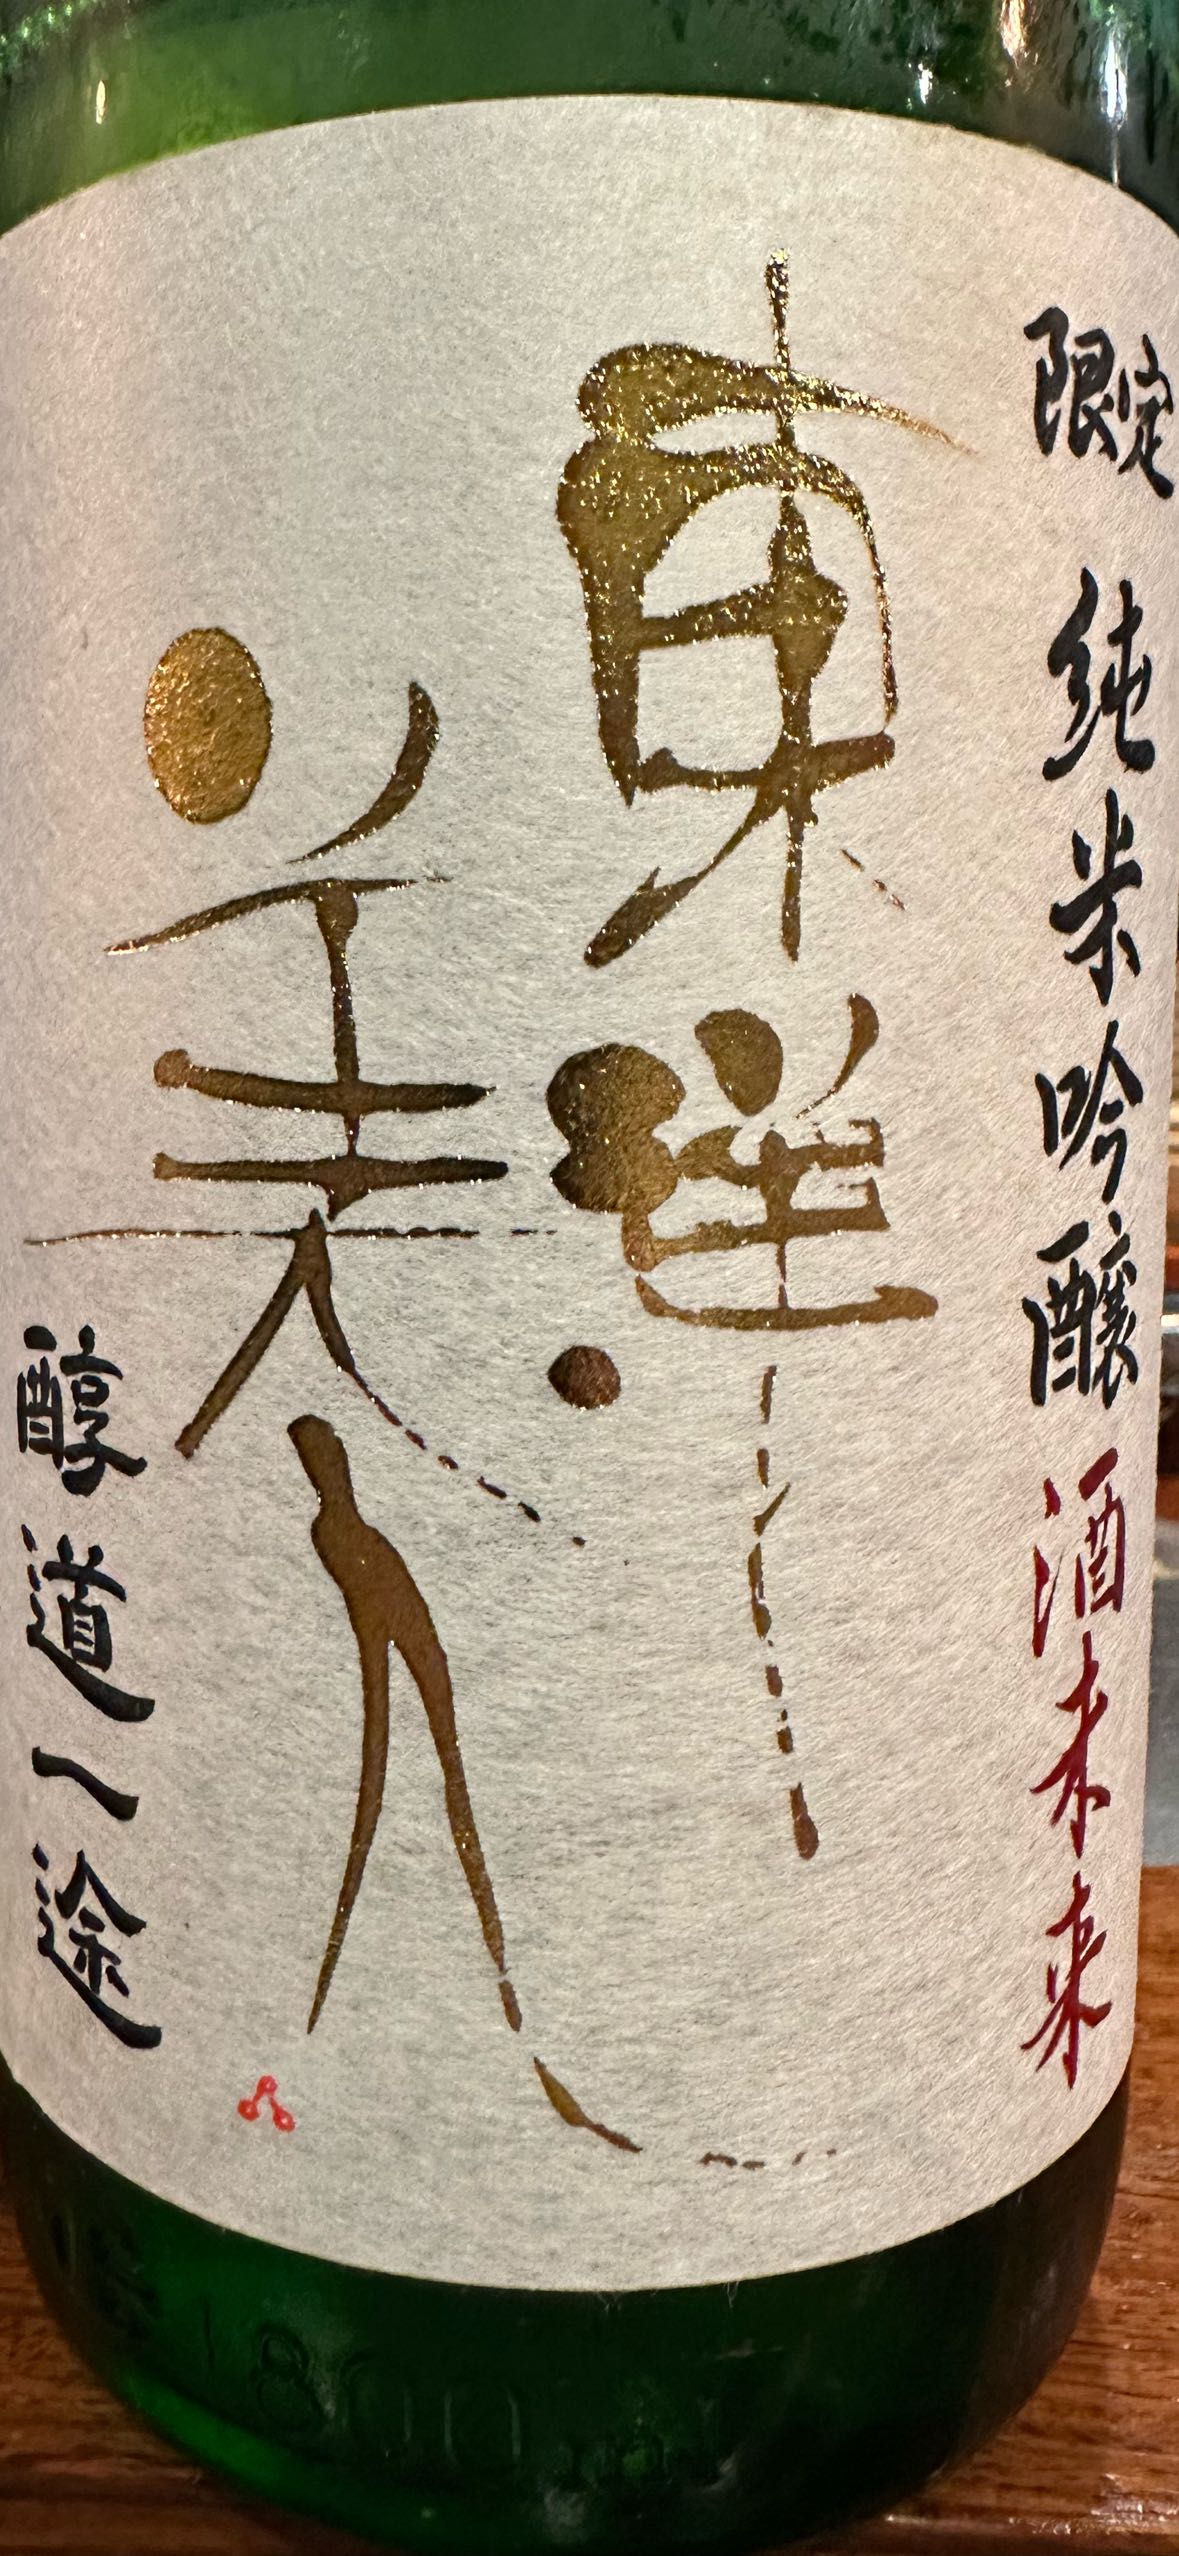 限定 純米吟醸 酒未来
東洋
美人
醇道一途
1800